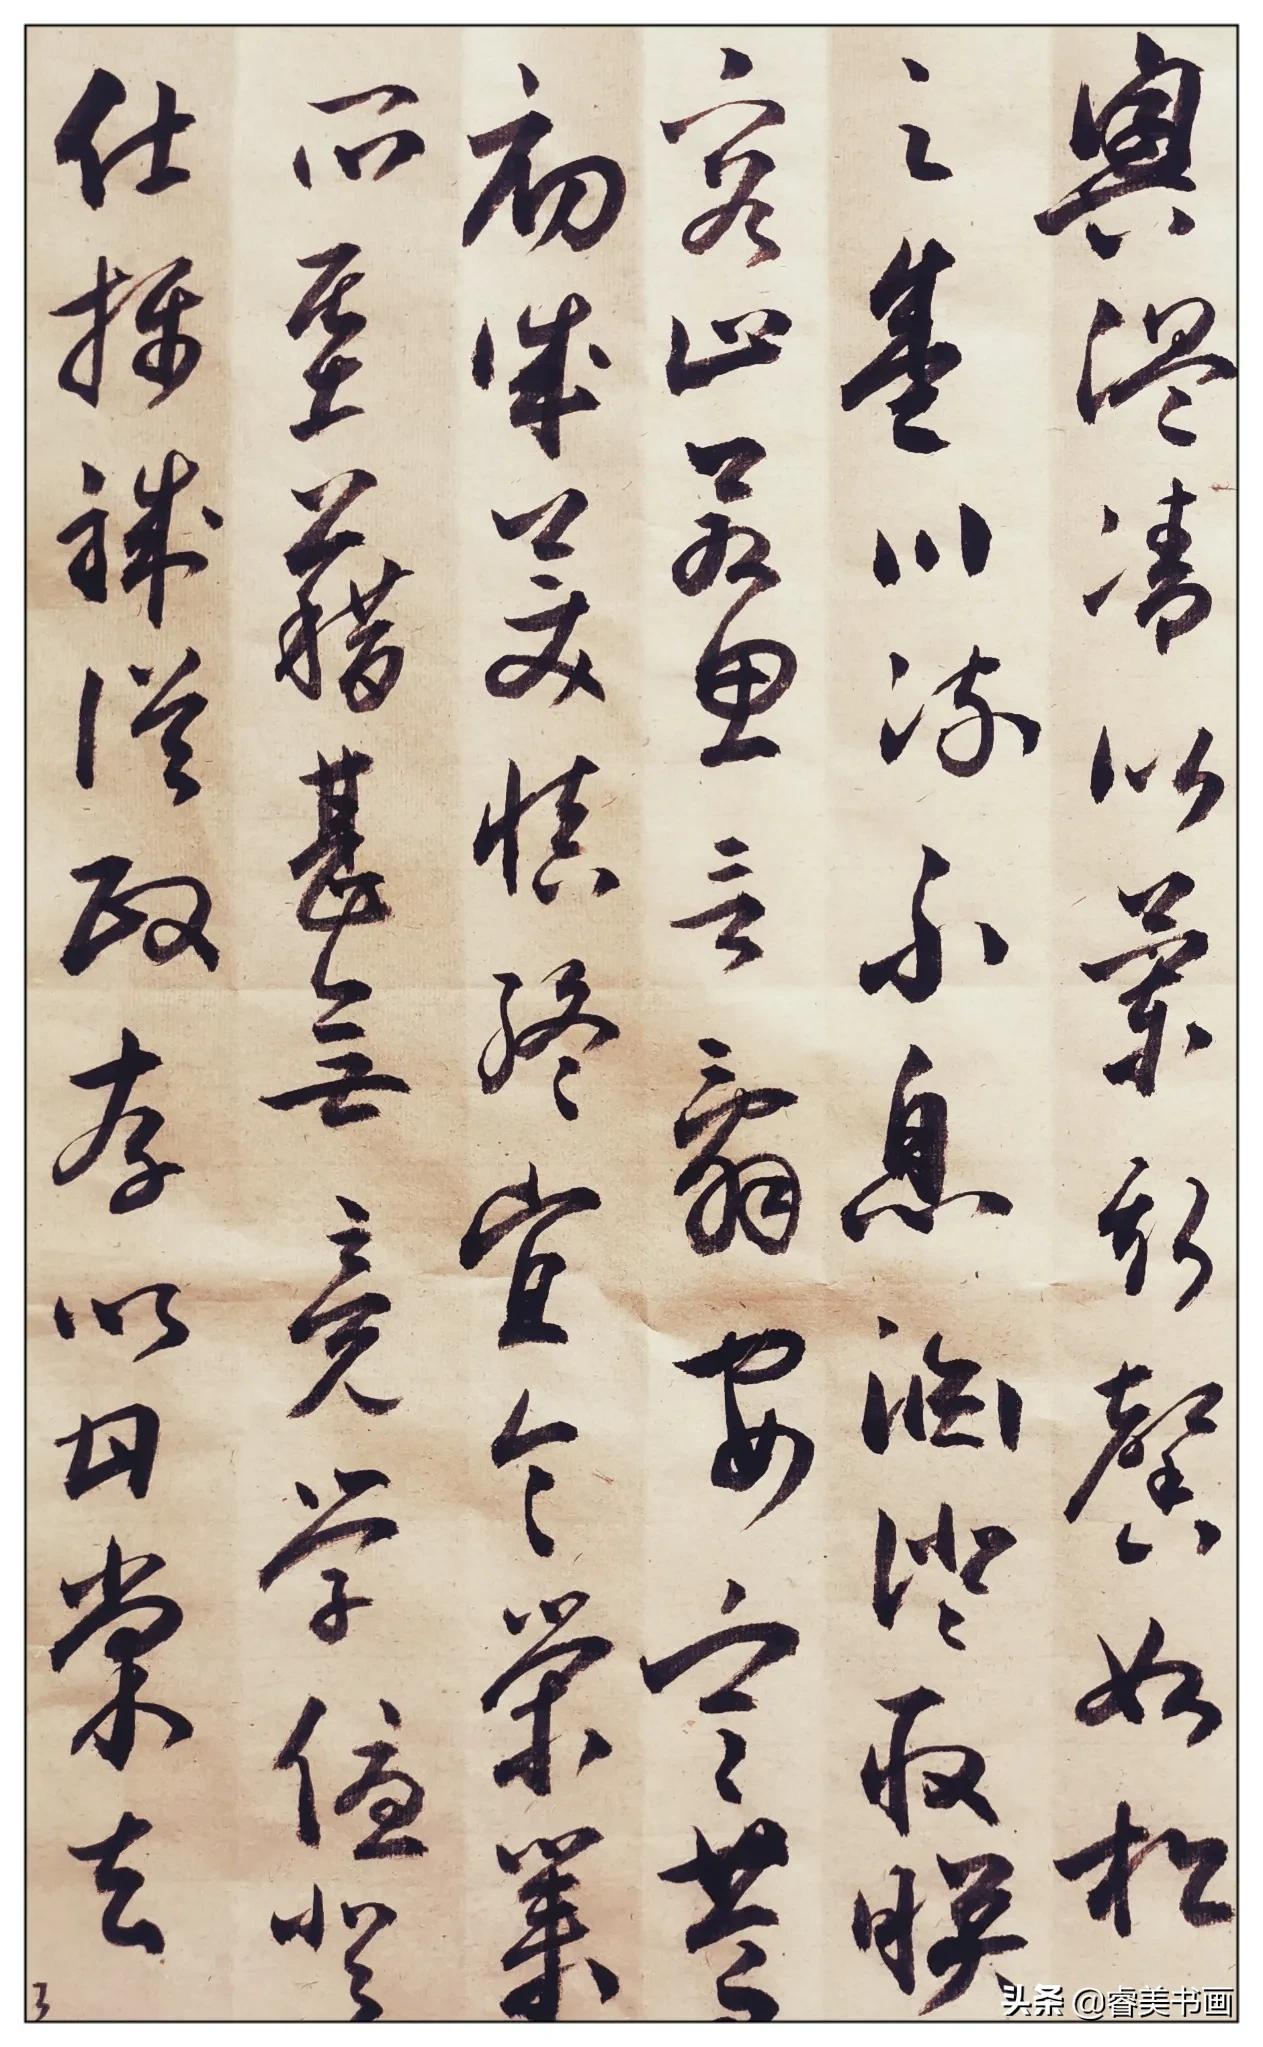 興溫凊似蘭斯馨如松
之盛川流不息淵澄取映
容止若思言辭安定篤
初誠美慎終宜令榮業
所基藉甚無竟學優登
仕攝職從政存以甘棠去
3
头条 @睿美书画